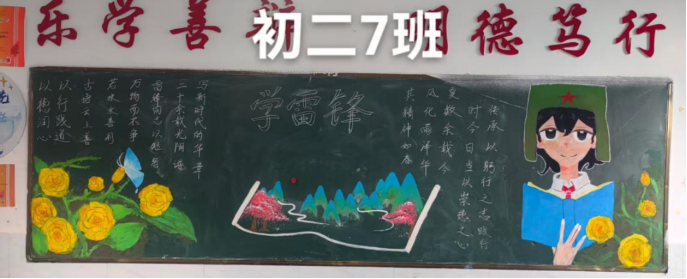 乐学善
明德笃行
初二7班
学雷锋
传承以躬行之志践行
时今日当以崇热之心
变数余载今
风化雨泽华
其精神如春
写新时代的华章
三十余载光阴
雷锋同志以
万物而不争
若水水善利
古语云上善
以行践道
以德润心